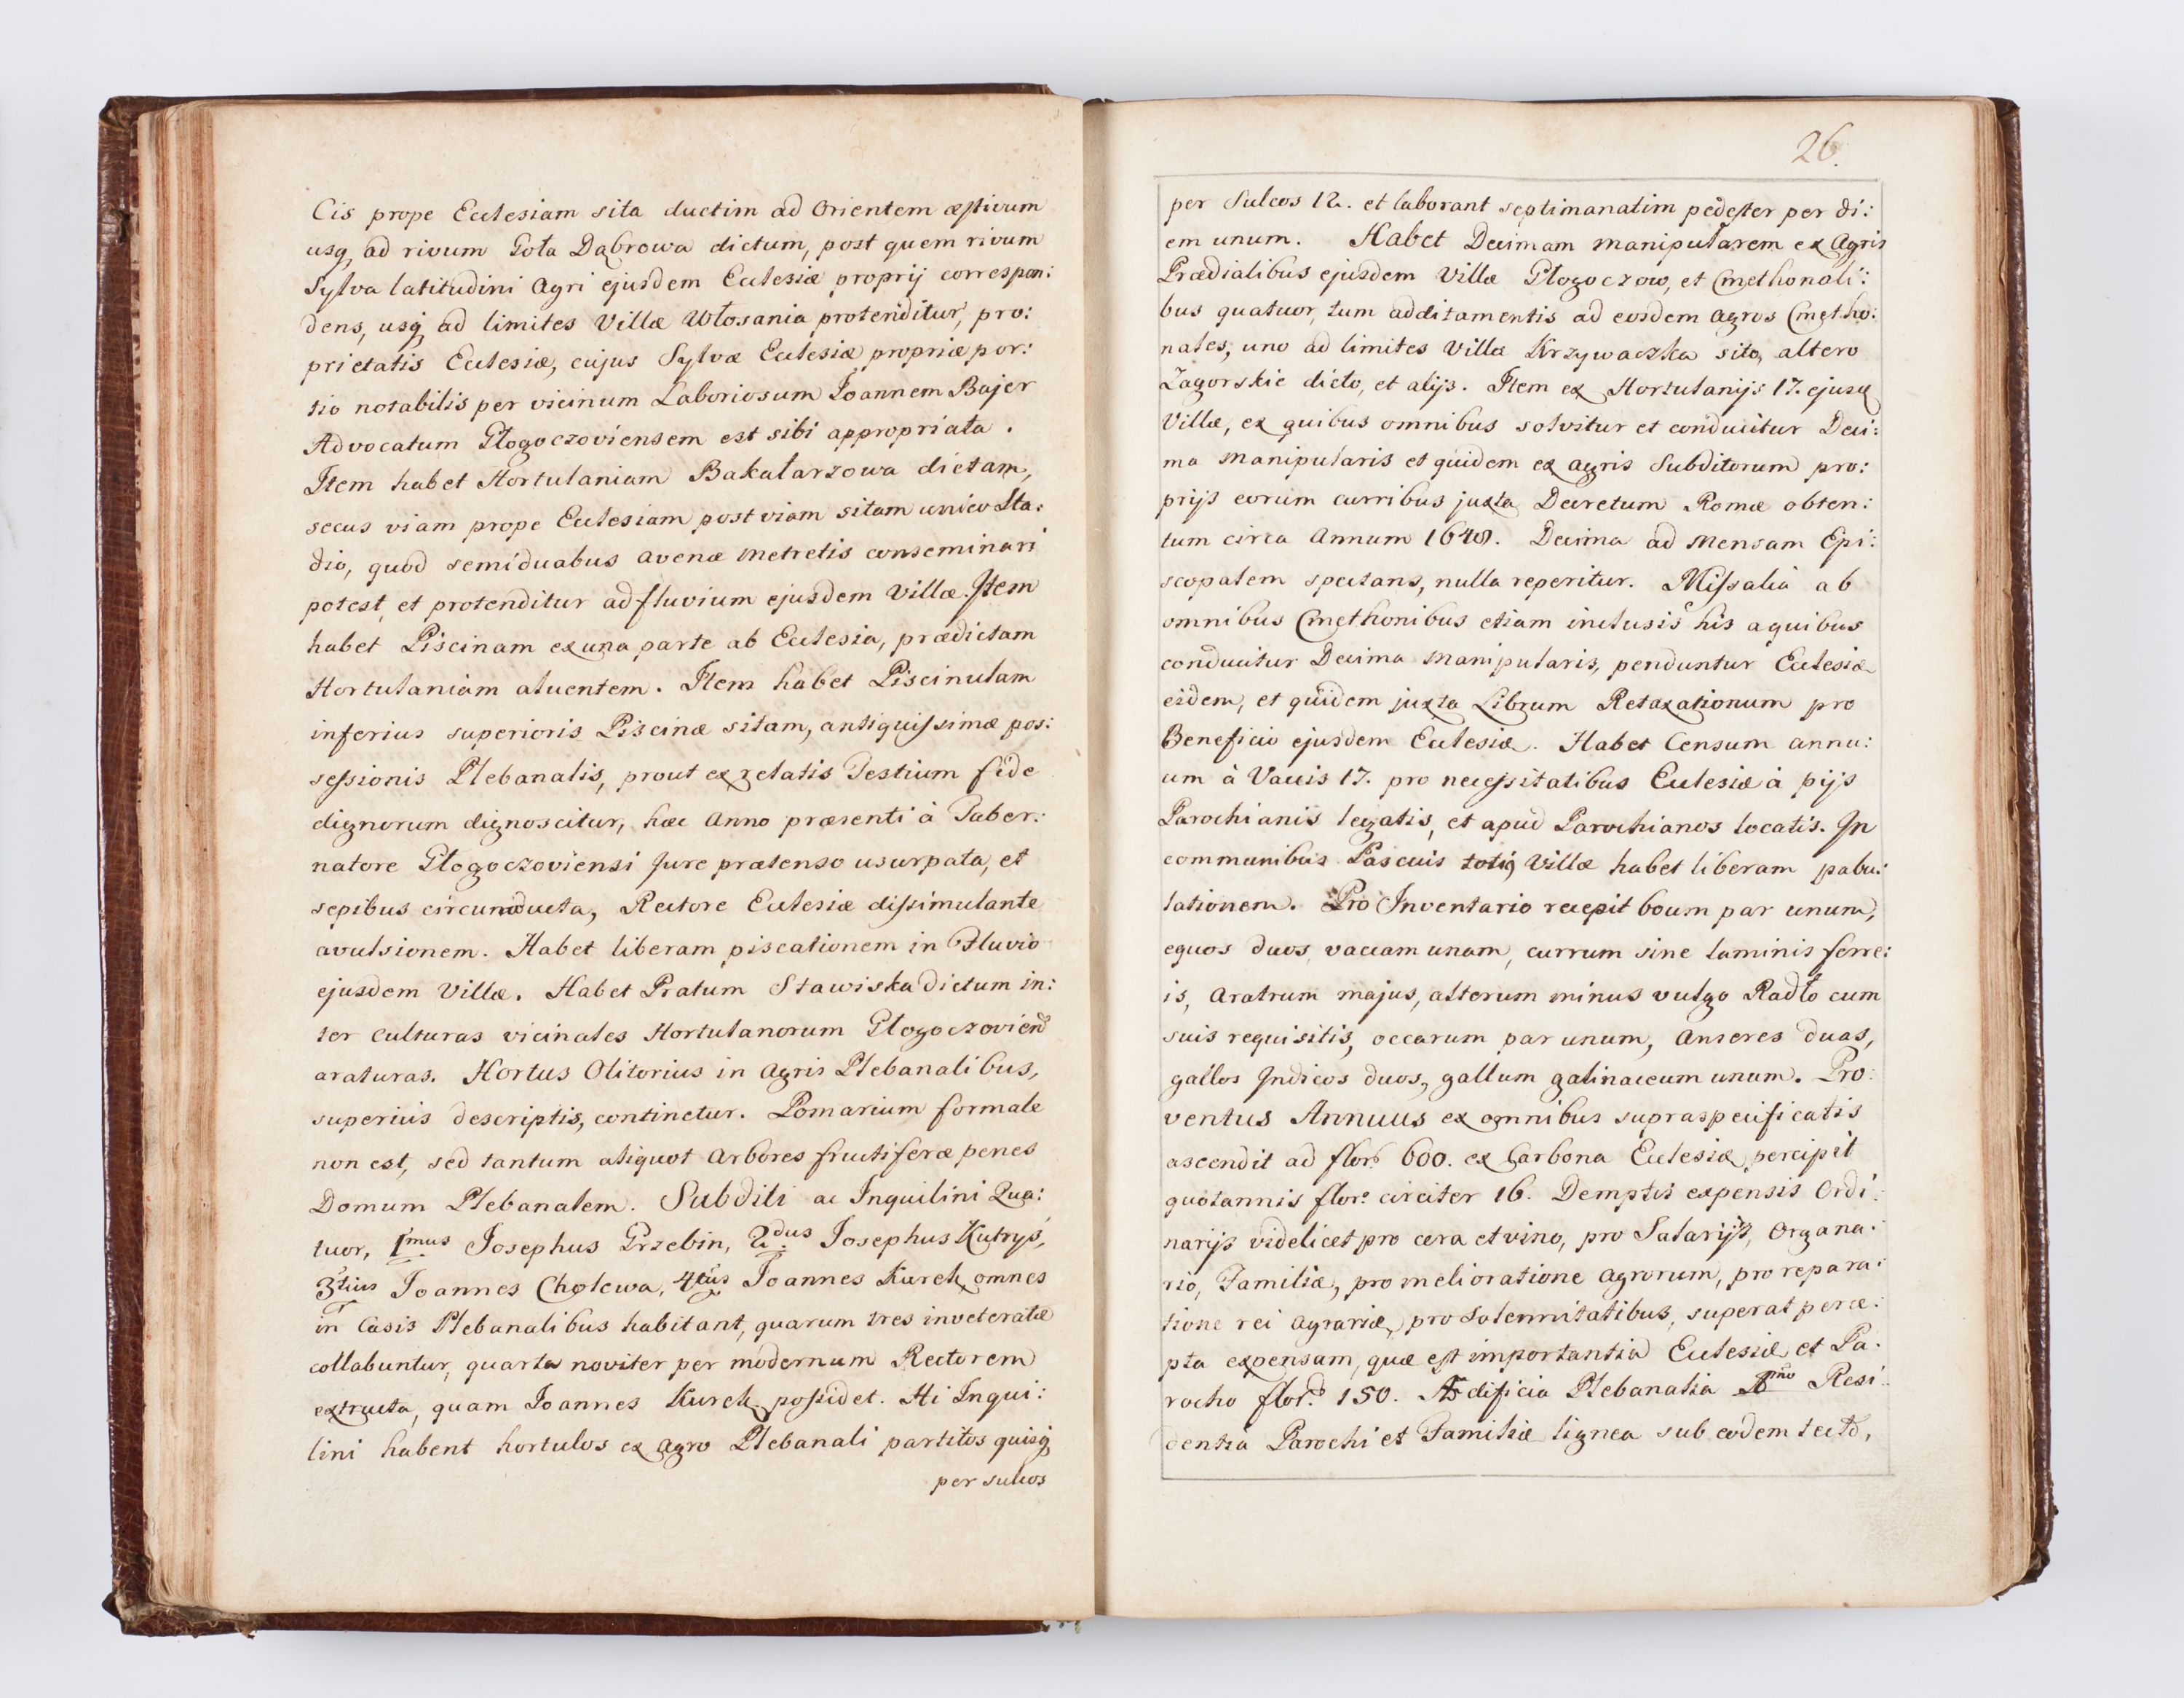 Cis prope Ecclesiam sita ductim ad Orientem æstivum
usq ad rivum Goła Dąbrowa dictum, post quem rivum
Sylva latitudini Agri ejusdem Ecclesiæ proprij correspon:
dens, usq ad limites Villæ Włosania protenditur, pro:
prietatis Ecclesiæ, cujus Sylvæ Ecclesiæ propriæ por:
tio notabilis per vicinum Laboriosum Joannem Bajer
Advocatum Głogoczoviensem est sibi appropriata.
Item habet Hortulaniam Bakałarzowa dictam,
secus viam prope Ecclesiam post viam sitam unico Sta:
dio, quod semiduabus avenæ metretis conseminari
potest, et protenditur ad fluvium ejusdem Villæ. Item
habet Piscinam ex una parte ab Ecclesia, prædictam
Hortulaniam aluentem. Item habet Piscinulam
inferius superioris Piscinæ sitam, antiquissimæ pos:
sessionis Plebanalis, prout ex relatis Testium fide
dignorum dignoscitur, hoc Anno præsenti à Taber:
natore Głogoczoviensi Jure prætenso usurpata, et
sepibus circumducta, Rectore Ecclesiæ dissimulante
avulsionem. Habet liberam piscationem in Fluvio
ejusdem Villæ. Habet Pratum Stawiska dictum in:
ter culturas vicinales Hortulanorum Głogoczovien
araturas. Hortus Olitorius in Agris Plebanalibus,
superius descriptis, continetur. Pomarium formale
non est, sed tantum aliquot Arbores fructiferæ penes
Domum Plebanalem. Subditi ac Inquilini Qua:
tuor, 1mus Josephus Grzebin, 2dus Josephus Kutryś,
3tius Joannes Cholewa, 4tus Joannes Kurek, omnes
in Casis Plebanalibus habitant, quarum tres inveteratæ
collabuntur, quarta noviter per modernum Rectorem
extructa, quam Joannes Kurek possidet. Hi Inqui:
lini habent hortulos ex agro Plebanali partitos quisq
per sulcos
26.
per Sulcos 12. et laborant septimanatim pedester per di:
em unum. Habet Decimam manipularem ex Agris
Prædialibus ejusdem Villæ Głogoczow, et Cmethonali:
bus quatuor, tum additamentis ad eosdem agros Cmetho:
nales, uno ad limites Villæ Krzywaczka sito, altero
Zagorskie dicto, et alijs. Item ex Hortulanijs 17. ejusd
Villæ, ex quibus omnibus solvitur et conducitur Deci:
ma Manipularis et quidem ex agris Subditorum pro:
prijs eorum curribus juxta Decretum Romæ obten:
tum circa Annum 1648. Decima ad Mensam Epi:
scopalem spectans, nulla reperitur. Missalia ab
omnibus Cmethonibus etiam inclusis his a quibus
conducitur Decima Manipularis, penduntur Ecclesiæ
eidem, et quidem juxta Librum Retaxationum pro
Beneficio ejusdem Ecclesiæ. Habet Censum annu:
um à Vaccis 17. pro necessitatibus Ecclesiæ à pijs
Parochianis legatis, et apud Parochianos locatis. In
communibus Pascuis totiq Villæ habet liberam pabu:
lationem. Pro Inventario recepit boum par unum,
equos duos, vaccam unam, currum sine laminis ferre:
is, Aratrum majus, alterum minus vulgo Radło cum
suis requisitis, occarum par unum, Anseres duas,
gallos Indicos duos, gallum galinaceum unum. Pro:
ventus Annuus ex omnibus supraspecificatis
ascendit ad flor 600. ex Carbona Ecclesiæ percipit
quotannis flor: circiter 16. Demptis expensis Ordi:
narijs videlicet pro cera et vino, pro Salarijs, Organa:
rio, Familiæ, pro melioratione Agrorum, pro repara:
tione rei Agrariæ, pro Solennitatibus, superat perce:
pta expensam, quæ est importantia Ecclesiæ et Pa:
rocho flor. 150. Ædificia Plebanalia 1mo Resi:
dentia Parochi et Familiæ lignea sub eodem tecto,